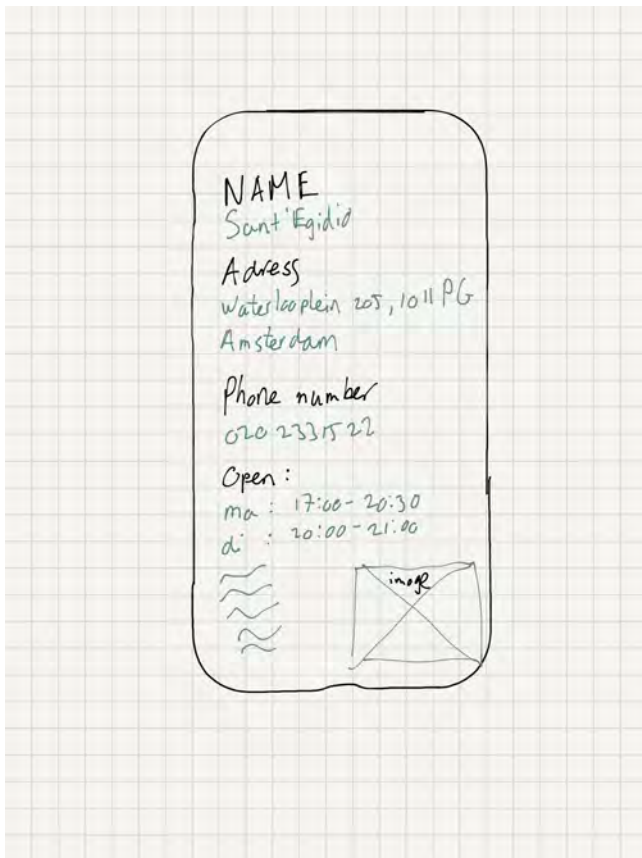 NAME
Sant'Egidio
Adress
Waterlooplein 205, 1011 PG
Amsterdam
Phone number
020 2331522
Open:
ma : 17:00 - 20:30
di : 20:00 - 21:00
image